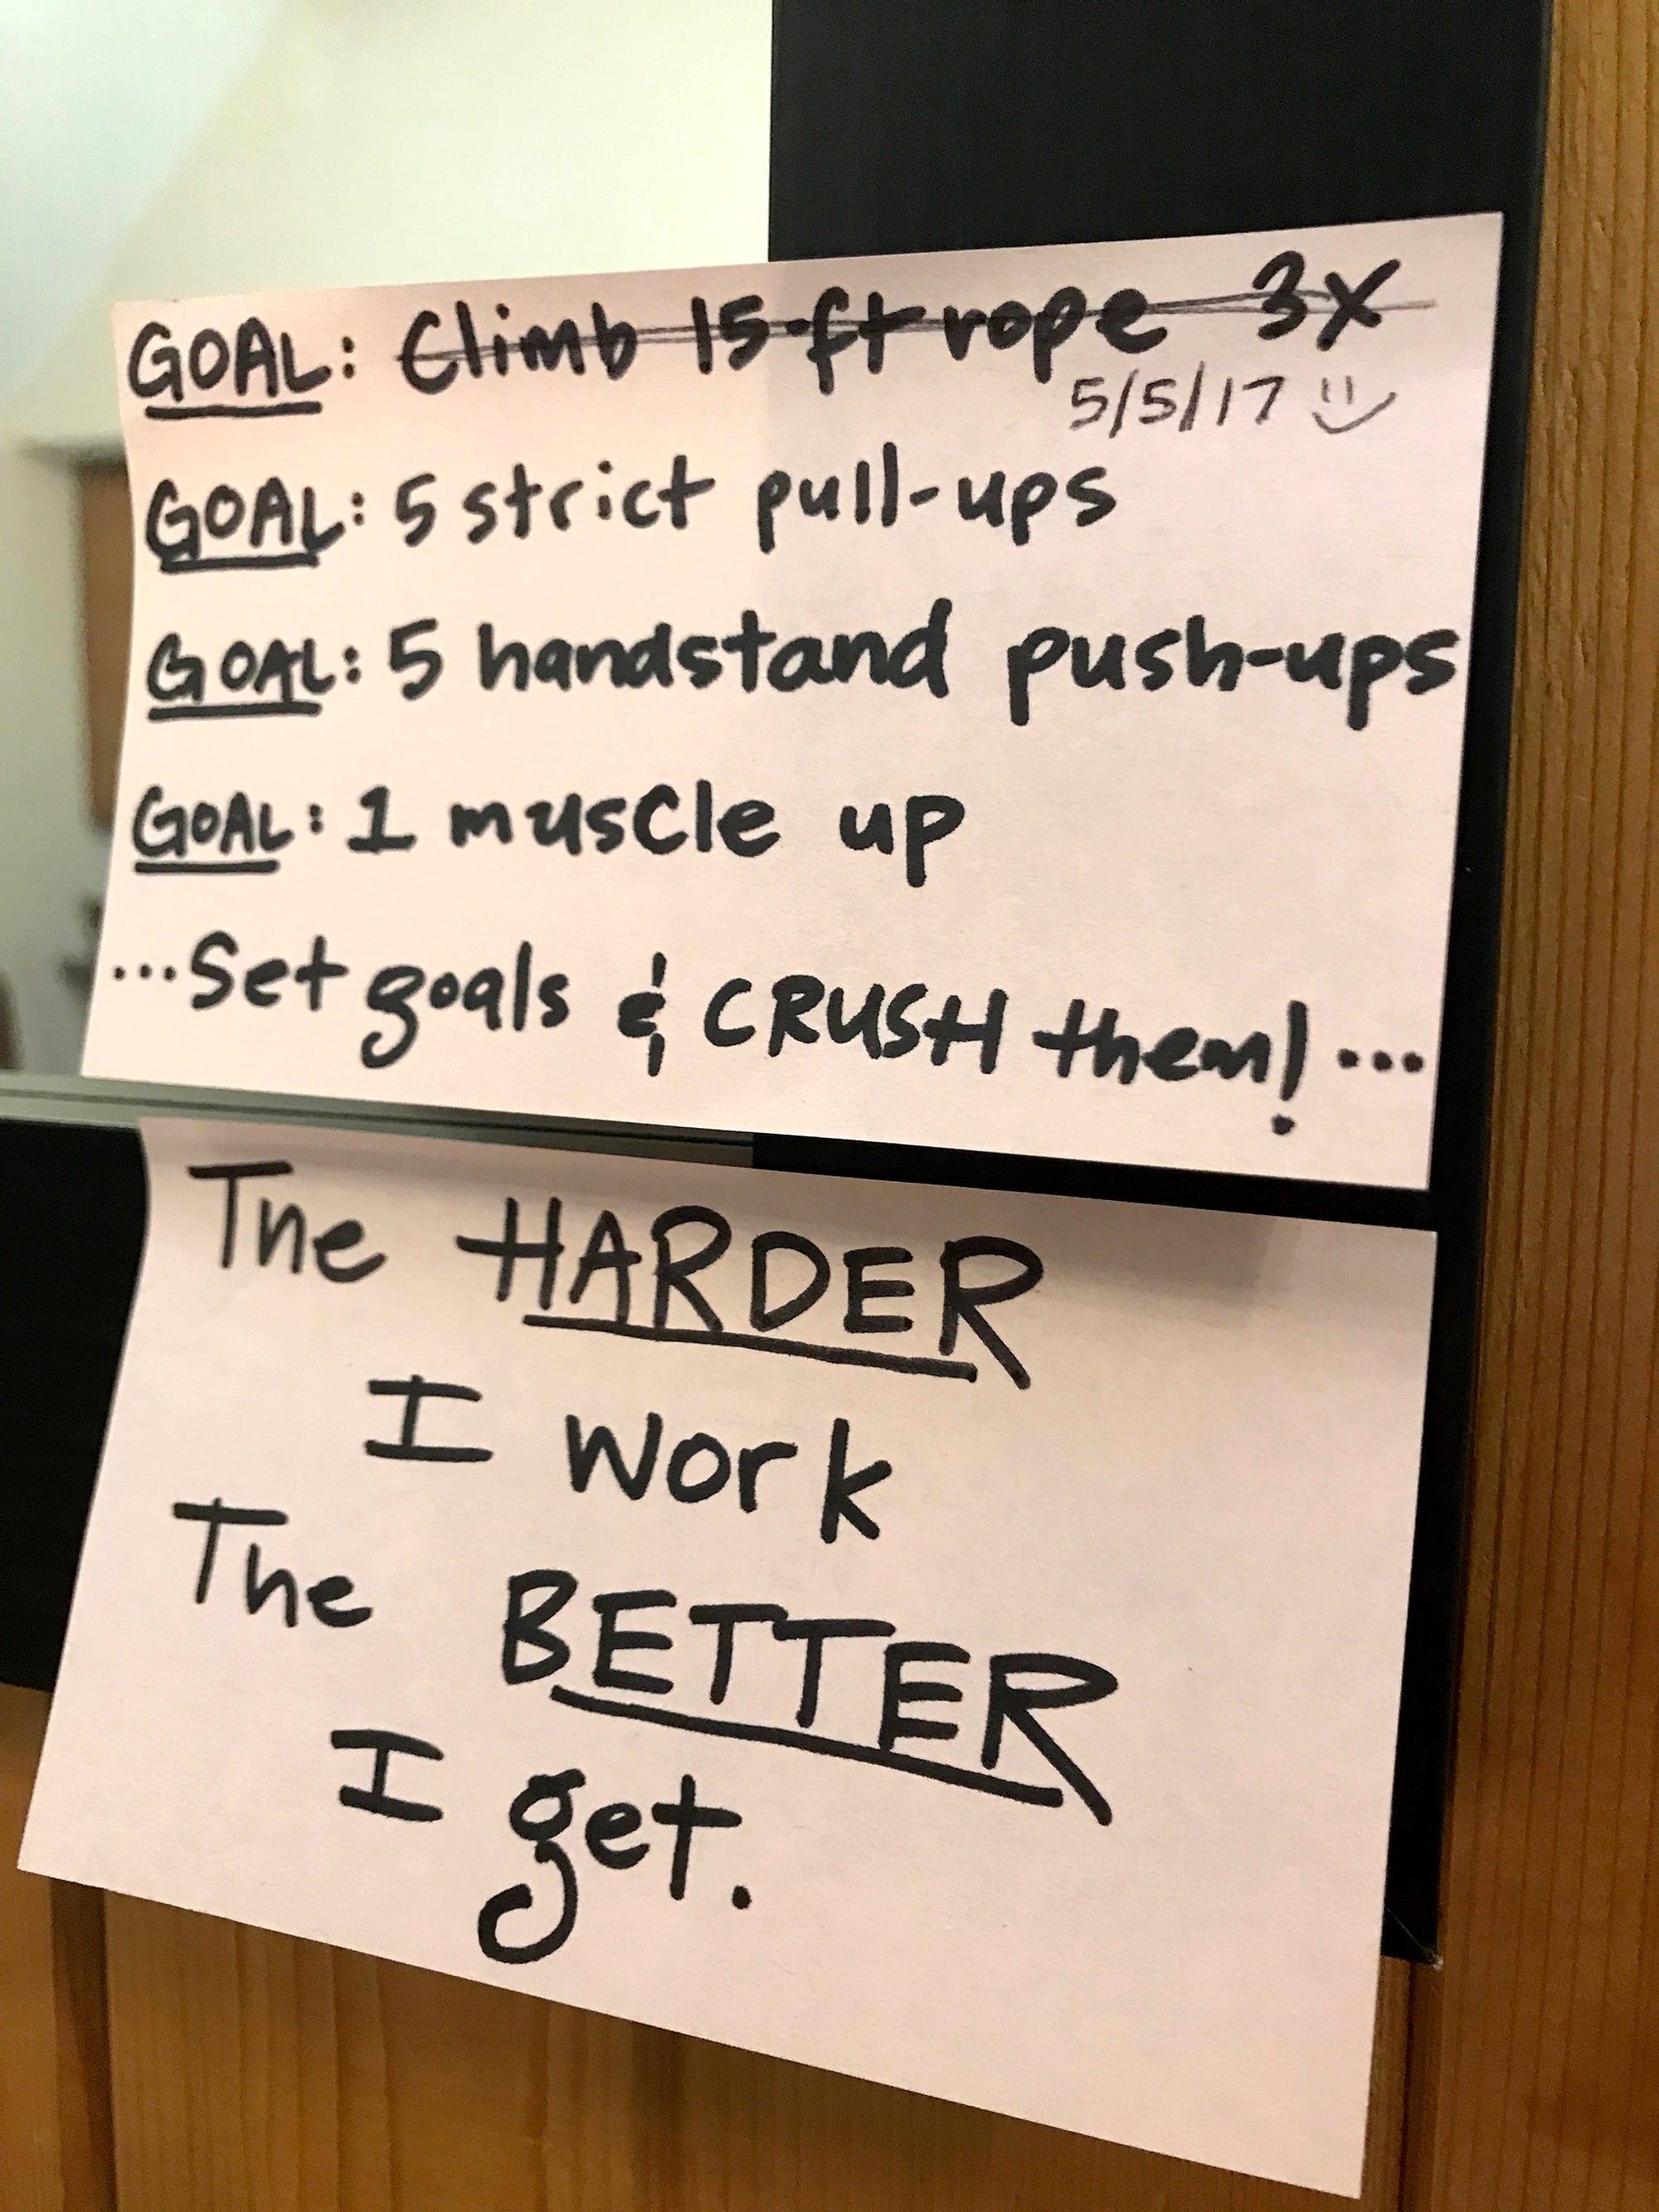 GOAL: Climb 15-ft rope 3x
5/5/17
GOAL: 5 strict pull-ups
GOAL: 5 handstand push-ups
GOAL: 1 muscle up
...Set goals & CRUSH them!...
The HARDER
I work
The BETTER
I get.